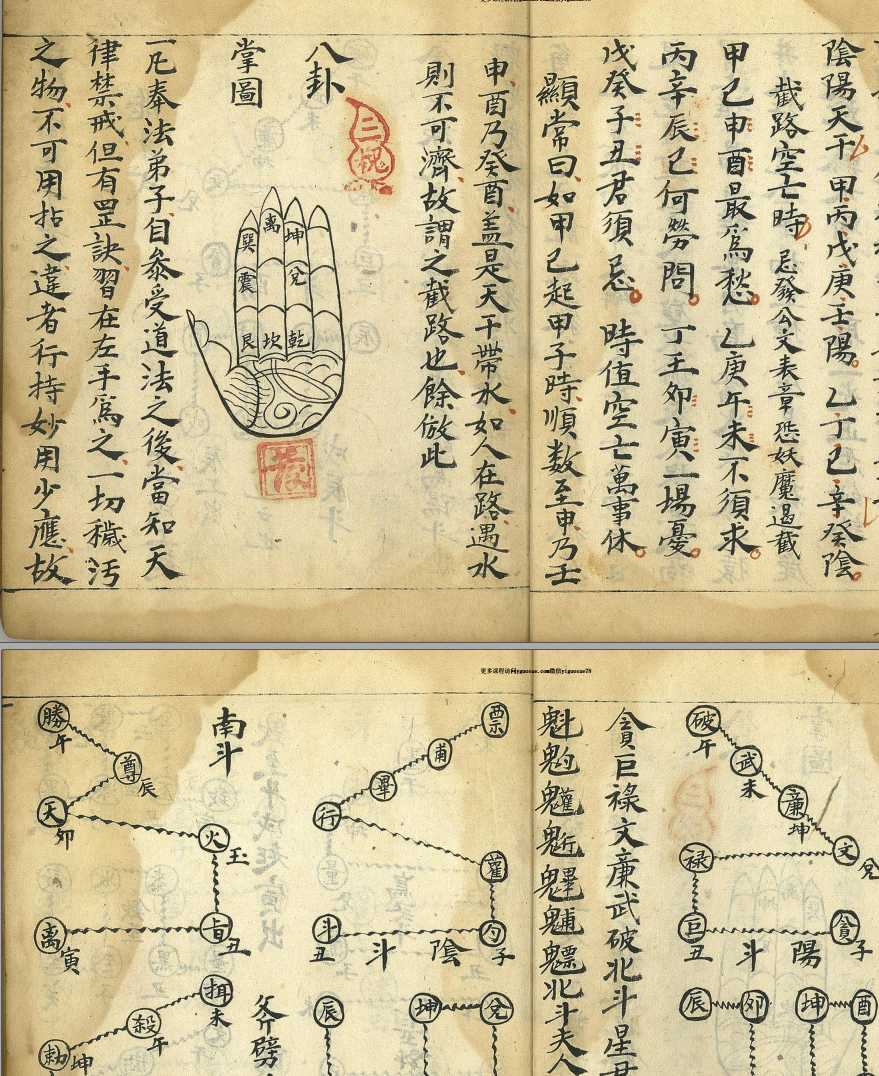 陰陽天干甲丙戊庚壬陽乙丁己辛癸陰
截路空亡時忌發公文表章恐妖魔遏截
甲己申酉最為愁乙庚午未不須求
丙辛辰巳何勞問丁壬卯寅一場憂
戊癸子丑君須忌時值空亡萬事休
顯常曰如甲己起甲子時順数至申乃壬
申酉乃癸酉盖是天干帶水如人在路遇水
則不可濟故謂之截路也餘倣此
八卦
掌圖
巽
离
坤
震
兌
艮
坎
乾
一凡奉法弟子自叅受道法之後當知天
律禁戒但有罡訣習在左手為之一切穢汚
之物不可用拈之違者行持妙用少應故
更多课程访问yguocue.com微信yiguocue78
破
午
武
未
廉
坤
文
兌
禄
巨
丑
貪
子
陽
斗
辰
卯
坤
酉
貪巨祿文廉武破北斗星君
魁䰢魓北斗夫人
票
甫
畢
行
雚
勺
子
斗
丑
陰
斗
兌
坤
辰
南斗
勝
午
尊
辰
天
卯
火
旨
丑
离
寅
斧劈
揖
未
殺
午
勅
坤